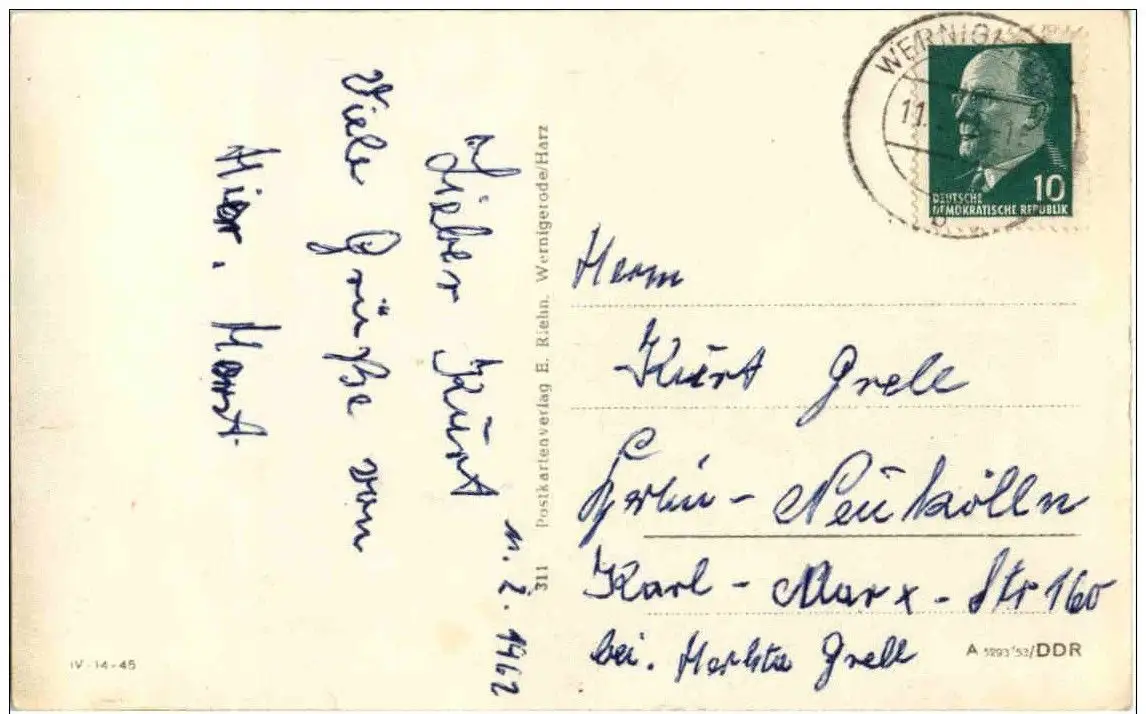 11. 2. 1962
Lieber Kurt
Viele Grüße von
Hier. Horst
311 Postkartenverlag E. Riehn. Wernigerode/Harz
IV-14-45
WERNIGE
11.
10
DEUTSCHE
DEMOKRATISCHE REPUBLIK
b
Herrn
Kurt Grell
Berlin - Neukölln
Karl - Marx - Str 160
bei. Grell
A 5293/53/DDR